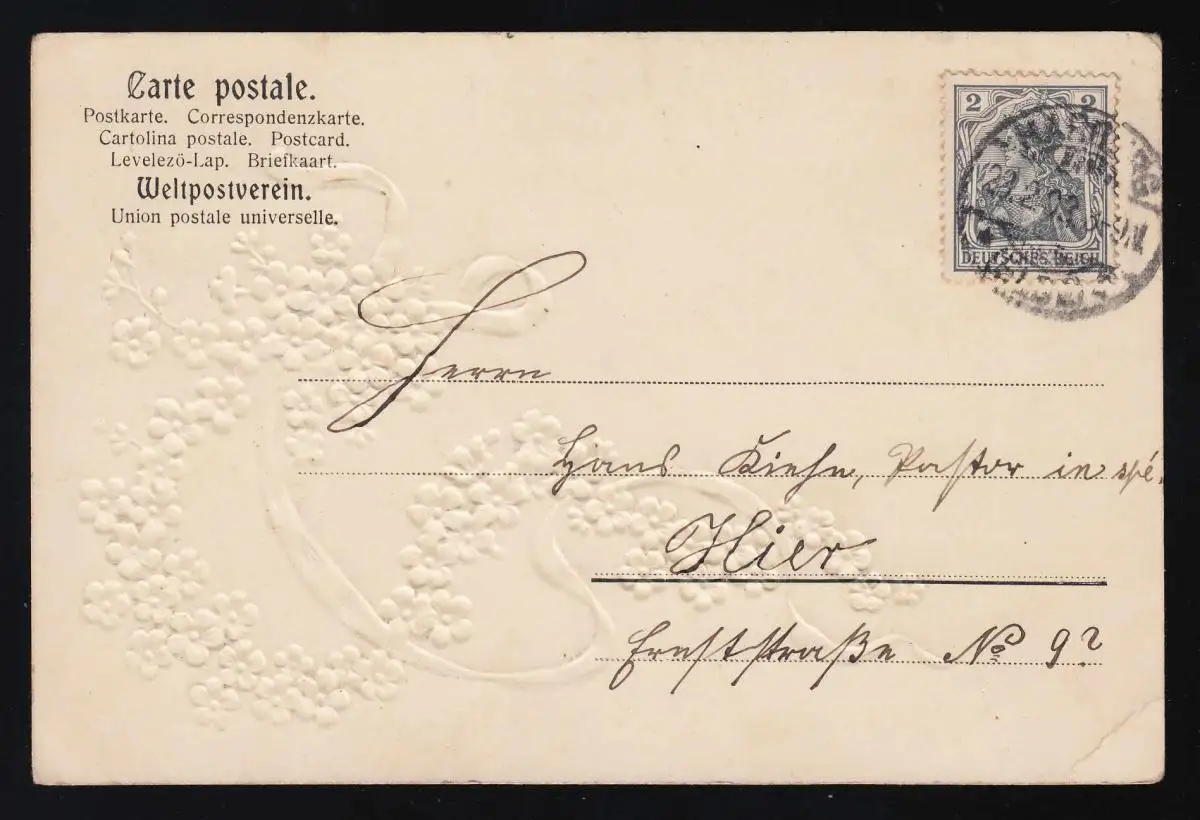 Carte postale.
Postkarte. Correspondenzkarte.
Cartolina postale. Postcard.
Levelezö-Lap. Briefkaart.
Weltpostverein.
Union postale universelle.
2 2
DEUTSCHES REICH
Herrn
Hans Kiehn, Pastor in spé.
Hier
Ernststraße No 9?